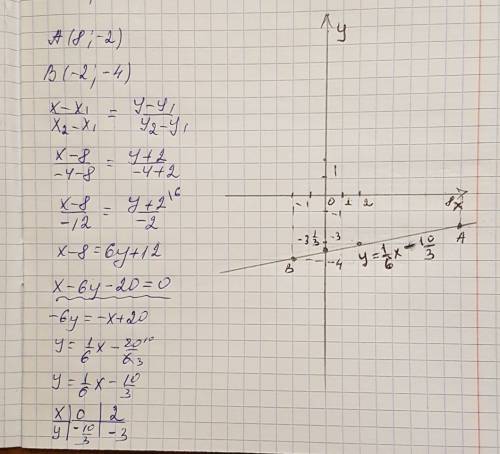 A(8;-2)
B(-2;-4)
x-x₁/x₂-x₁ = y-y₁/y₂-y₁
x-8/-4-8 = y+2/-4+2
x-8/-12 = y+2/-2 \6
x-8=6y+12
x-6y-20=0
-6y=-x+20
y=1/6x-20/6 10/3
y=1/6x-10/3
x 0 2
y -10/3 -3
y
1
-1 0 1 2 8 x
-1
-3 1/3 -3
-4
B
A
y=1/6x-10/3